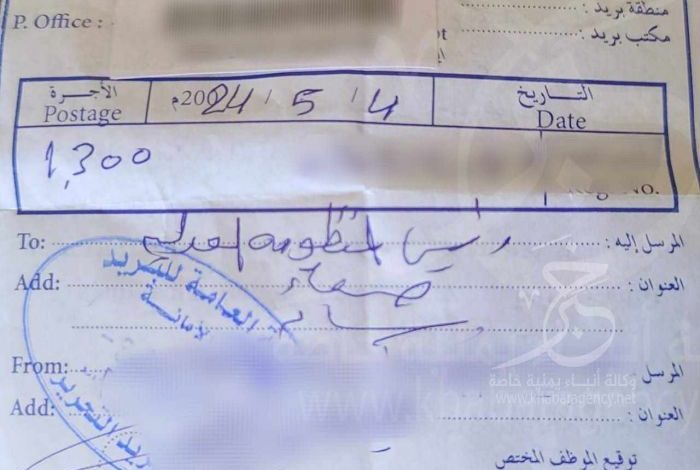 منطقة بريد :
P. Office : مكتب بريد :
الأجرة 2024 / 5 / 4 م التــاريخ
Postage Date
1,300
No.
To: رئيس المنظومة العدلية المرسل إليه :
Add: صنعاء العنوان :
From: المرسل :
Add: العنوان :
توقيع الموظف المختص
العـامـة للبـريد
لأمانـة
بريد التحرير
خبر
وكالة أنباء يمنية خاصة
www.khabaragency.net